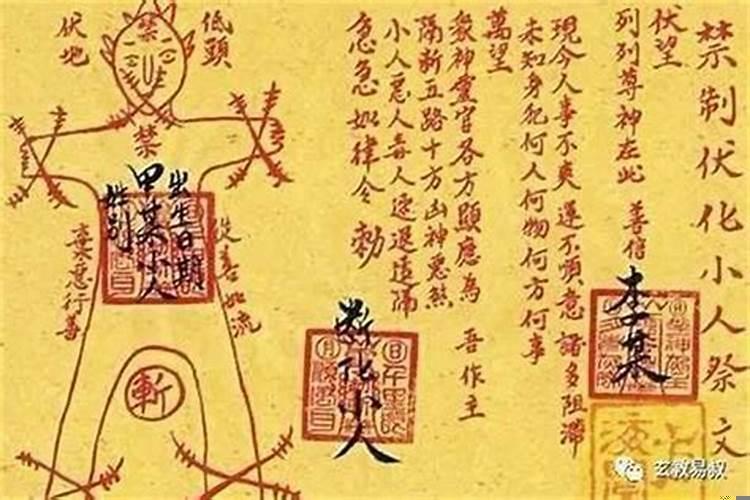 禁制伏化小人祭文
伏望
列列尊神在此 善信
李某
現今人事不爽運不順意諸多阻滯
未知身犯何人何物何方何事
萬望
眾神靈官各方顯應為 吾作主
隔斷五路十方凶神惡煞
小人惡人毒人速退遠隔
急急如律令 勅
斷化小人
低頭
伏地
禁
禁
出生日期
甲某小人
從善如流
棄惡行善
斬
玄教易叔